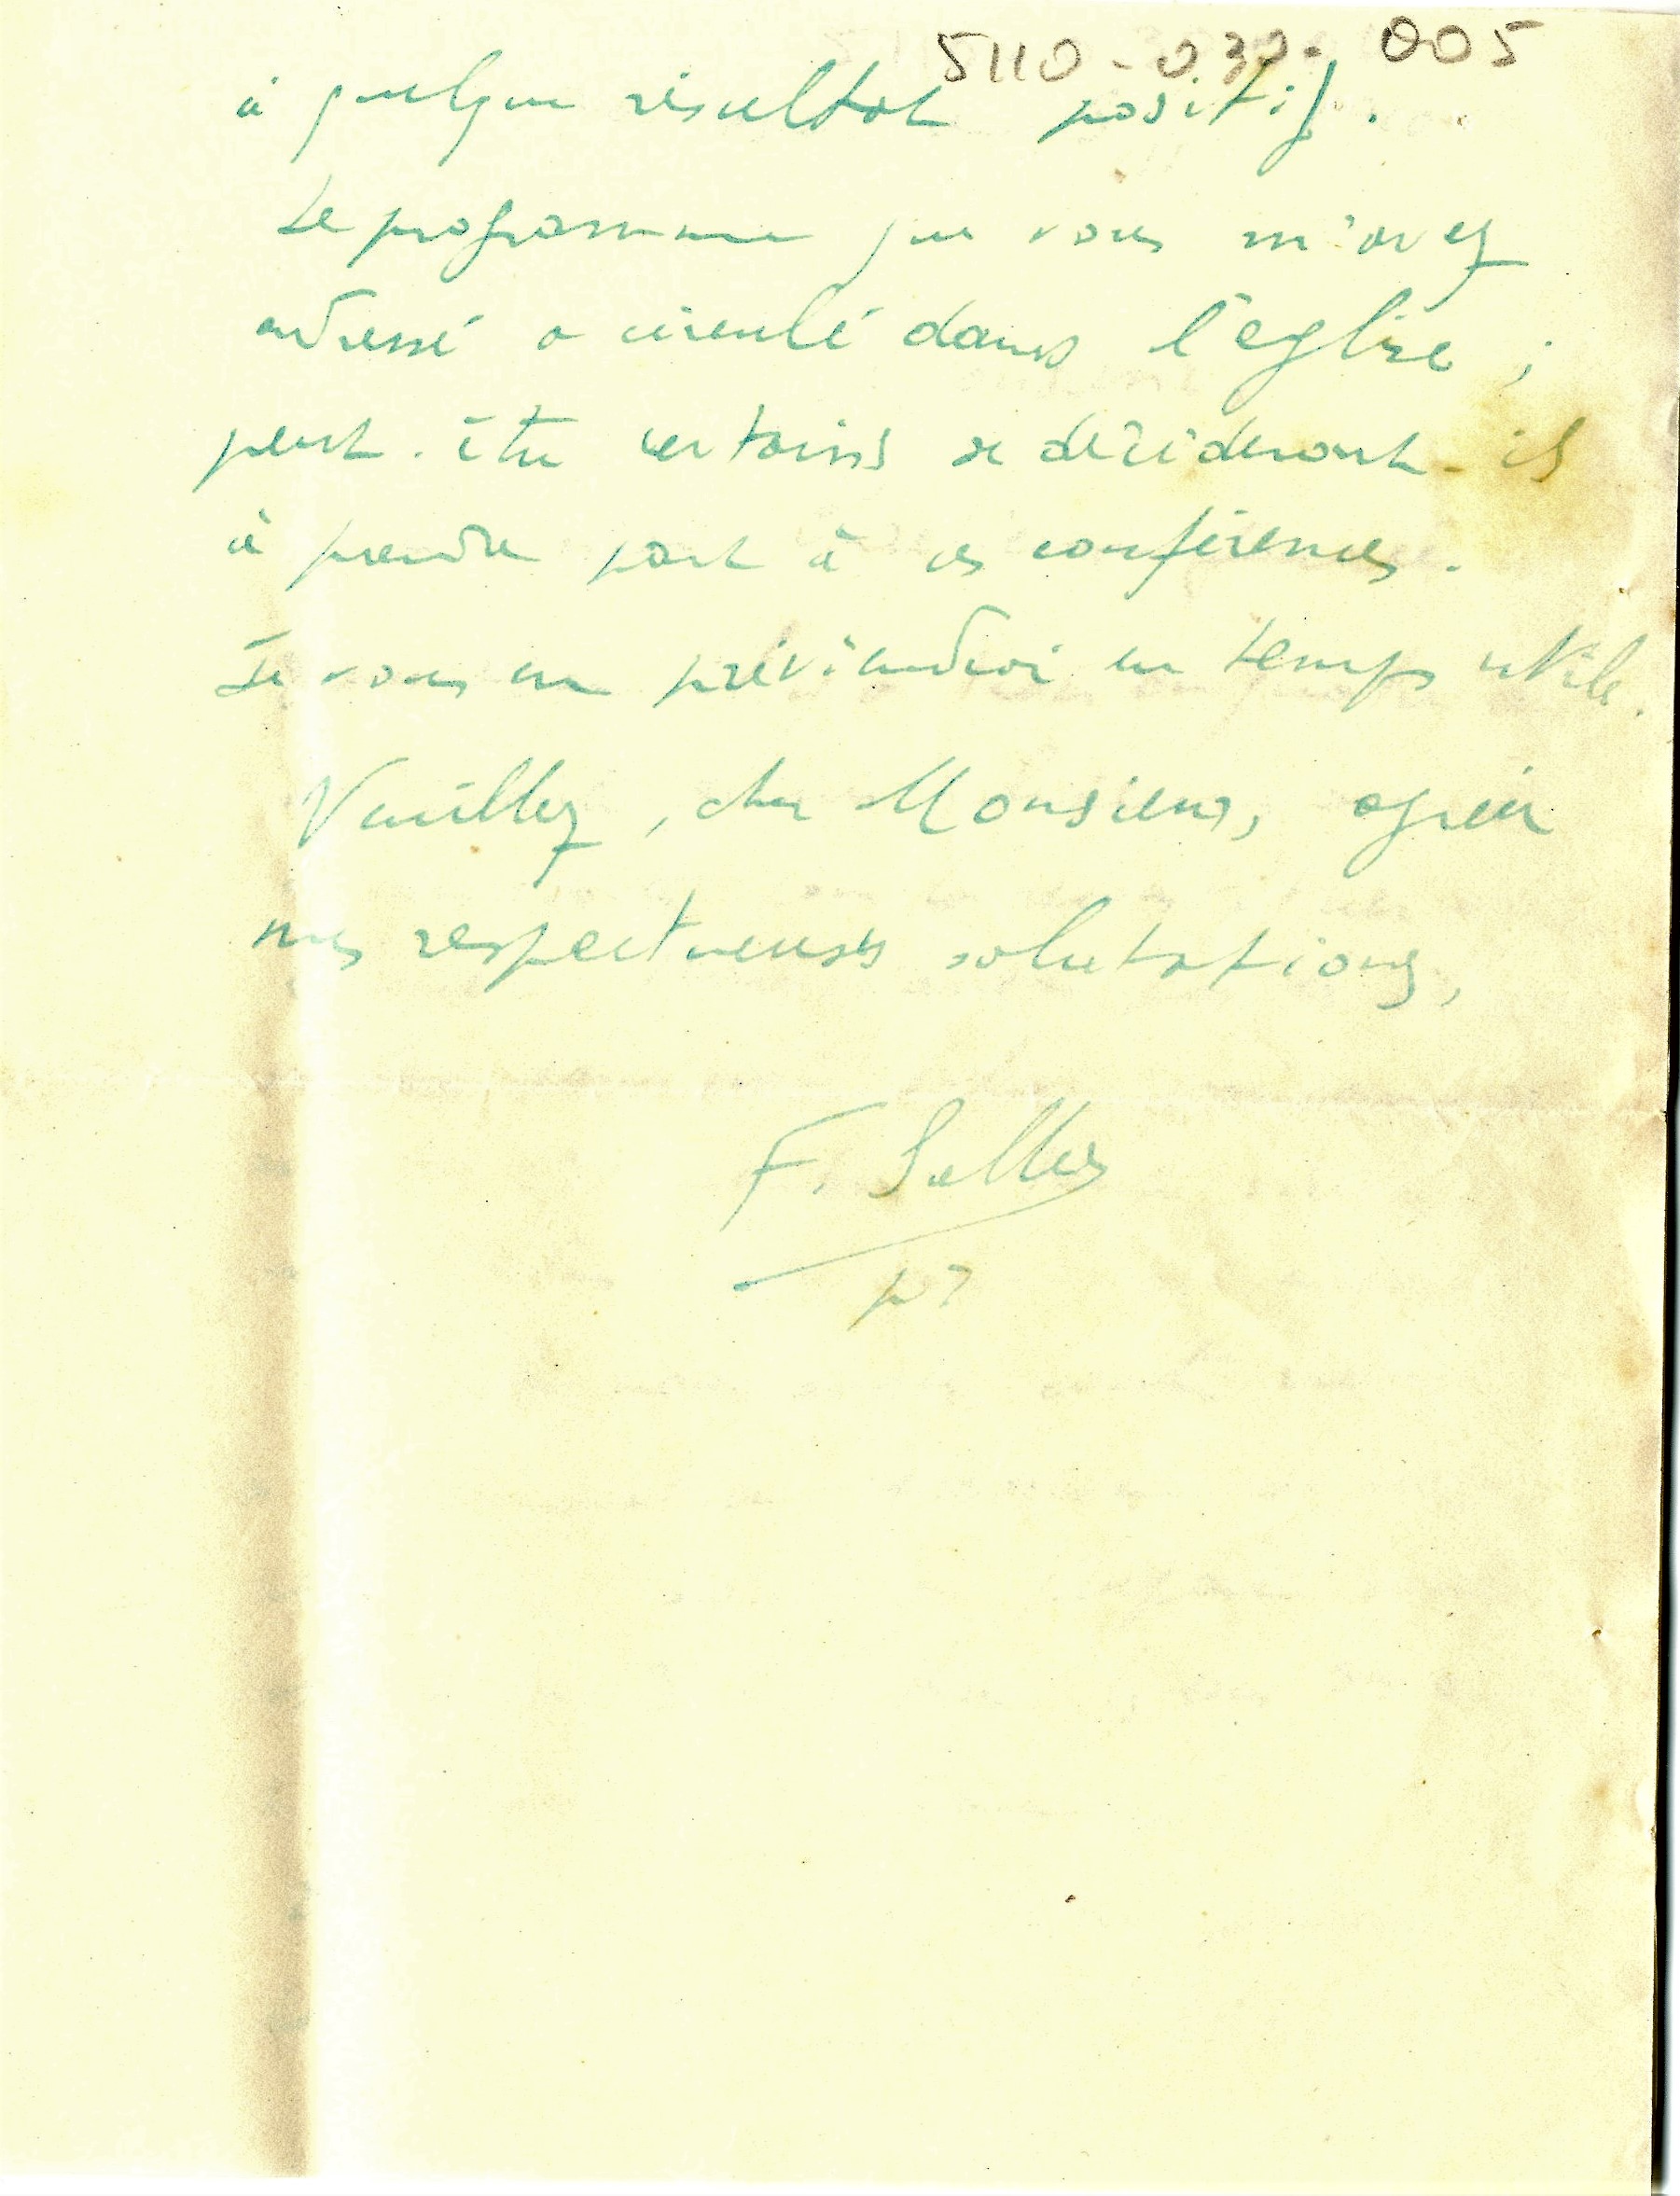 5110-030-005
à quelque résultat positif.
Le programme que vous m'avez
adressé a circulé dans l'église ;
peut-être certains se décideront-ils
à prendre part à ces conférences.
Je vous en préviendrai en temps utile.
Veuillez, cher Monsieur, agréer
mes respectueuses salutations,
F.